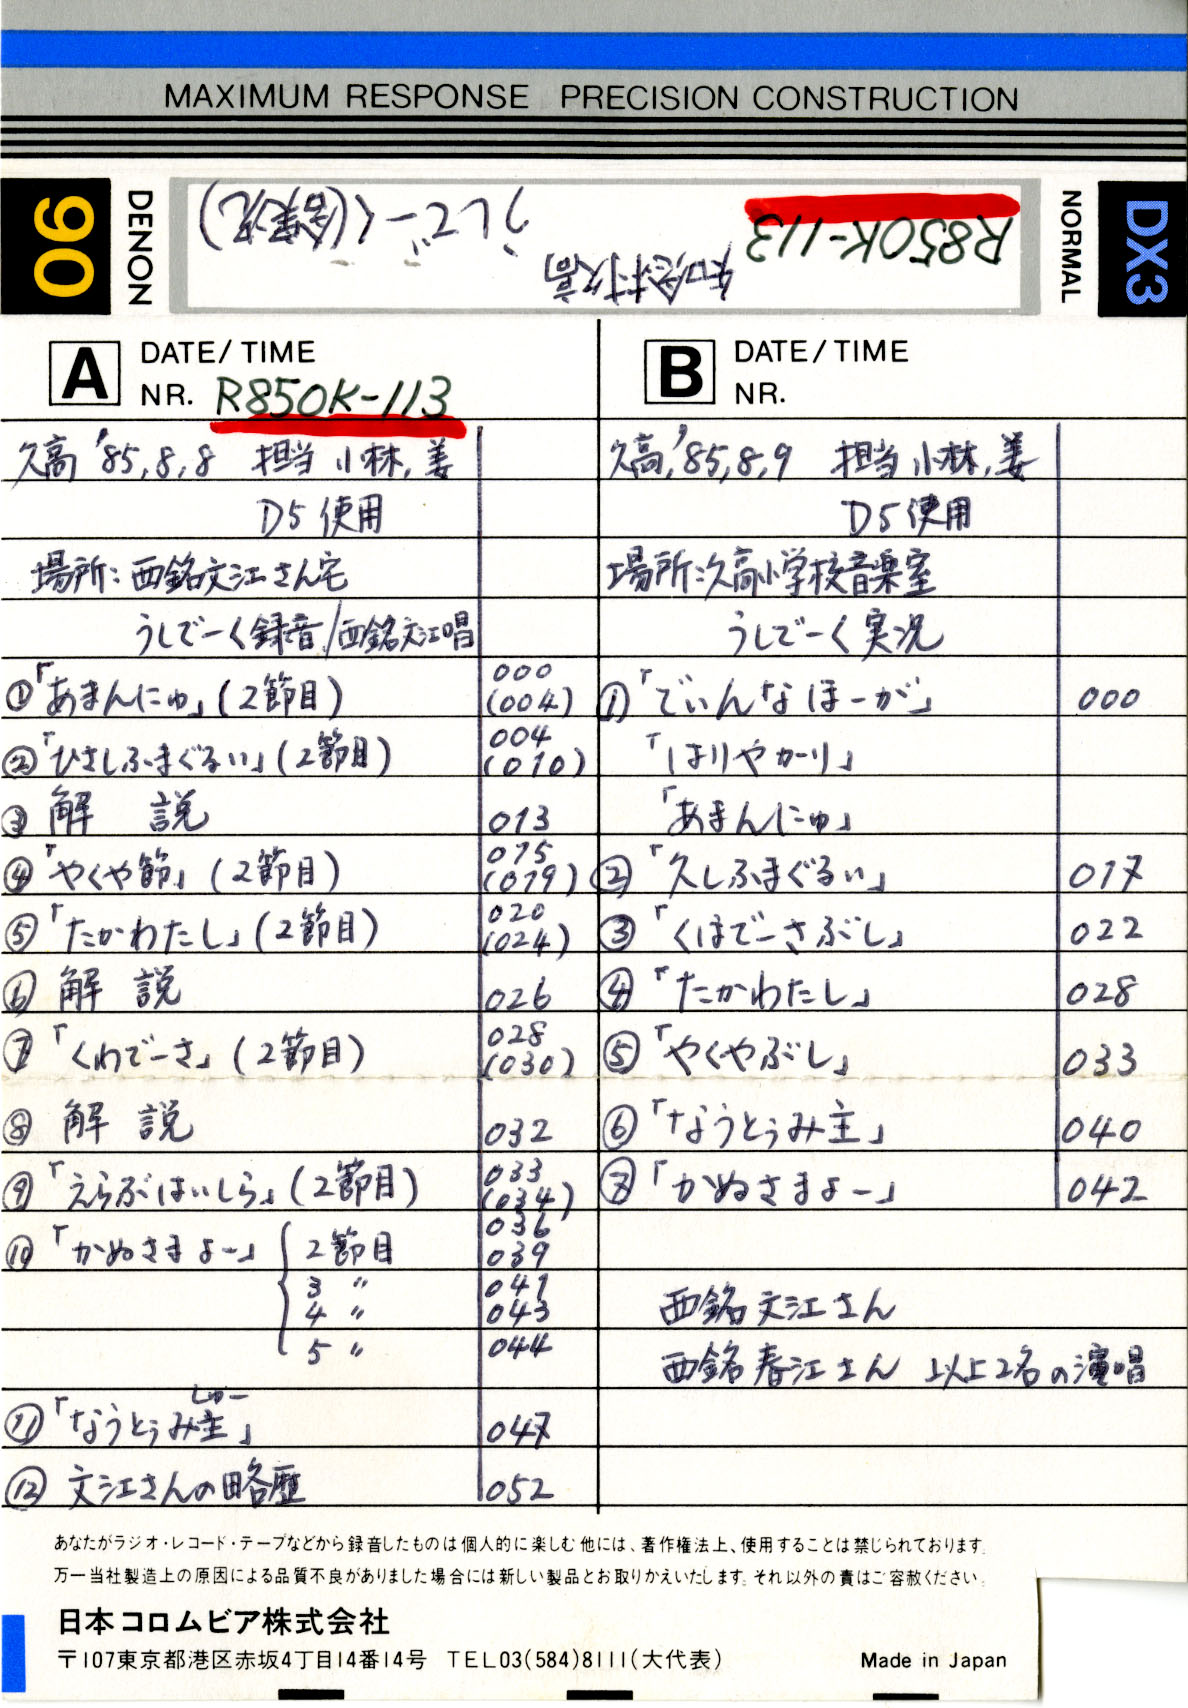 MAXIMUM RESPONSE PRECISION CONSTRUCTION
90
DENON
R850K-113
知念村久高
うしでーく(含実況)
NORMAL
DX3
A DATE/TIME
NR. R850K-113
久高 '85,8,8 担当 小林,姜
D5使用
場所:西銘文江さん宅
うしでーく録音/西銘文江唱
①「あまんにゅ」(2節目) 000 (004)
②「ひさしふまぐるい」(2節目) 004 (010)
③ 解 説 013
④「やくや節」(2節目) 015 (019)
⑤「たかわたし」(2節目) 020 (024)
⑥ 解 説 026
⑦「くわでーさ」(2節目) 028 (030)
⑧ 解 説 032
⑨「えらぶはいしら」(2節目) 033 (034)
⑩「かぬさまよー」 2節目 036 039
3 〃 041
4 〃 043
5 〃 044
⑪「なうとぅみ主」 しゅー 047
⑫ 文江さんの略歴 052
B DATE/TIME
NR.
久高,'85,8,9 担当 小林,姜
D5使用
場所:久高小学校音楽室
うしでーく実況
①「でぃんなほーが」 000
「はりやかーり」
「あまんにゅ」
②「久しふまぐるい」 017
③「くばでーさぶし」 022
④「たかわたし」 028
⑤「やくやぶし」 033
⑥「なうとぅみ主」 040
⑦「かぬさまよー」 042
西銘文江さん
西銘春江さん 以上2名の演唱
あなたがラジオ・レコード・テープなどから録音したものは個人的に楽しむ他には、著作権法上、使用することは禁じられております。
万一当社製造上の原因による品質不良がありました場合には新しい製品とお取りかえいたします。それ以外の責はご容赦ください。
日本コロムビア株式会社
〒107東京都港区赤坂4丁目14番14号 TEL03(584)8111(大代表)
Made in Japan